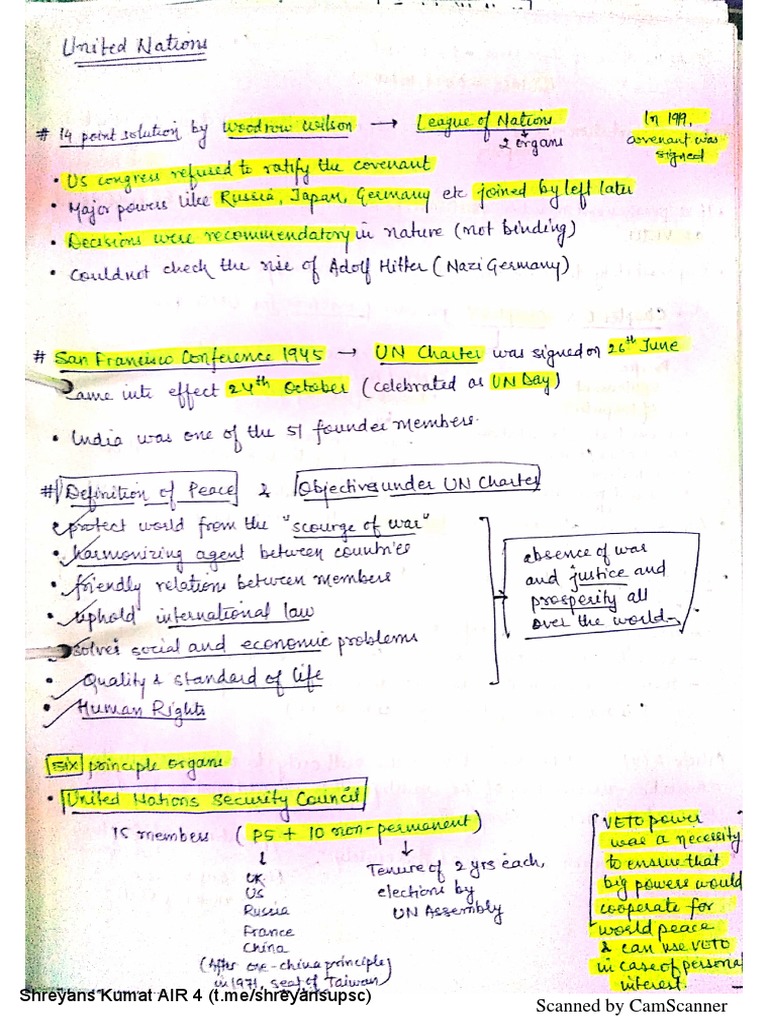 United Nations
# 14 point solution by Woodrow Wilson → League of Nations
2 organs
In 1919,
covenant was
signed
• US congress refused to ratify the covenant
• Major powers like Russia, Japan, Germany etc joined by left later
• Decisions were recommendatory in nature (not binding)
• Couldnot check the rise of Adolf Hitler (Nazi Germany)
# San Francisco Conference 1945 → UN Charter was signed on 26th June
Came into effect 24th October (celebrated as UN Day)
• India was one of the 51 founder members.
# Definition of Peace & Objectives under UN Charter
• protect world from the "scourge of war"
• harmonizing agent between countries
• friendly relations between members
• uphold international law
• solves social and economic problems
• Quality & standard of life
• Human Rights
absence of war
and justice and
prosperity all
over the world.
six principle organs
• United Nations Security Council
15 members ( P5 + 10 non-permanent)
↓
UK
US
Russia
France
China
(After one-china principle
in 1971, seat of Taiwan)
↓
Tenure of 2 yrs each,
elections by
UN Assembly
VETO power
was a necessity
to ensure that
big powers would
cooperate for
world peace
& can use VETO
in case of personal
interest.
Shreyans Kumat AIR 4 (t.me/shreyansupsc)
Scanned by CamScanner